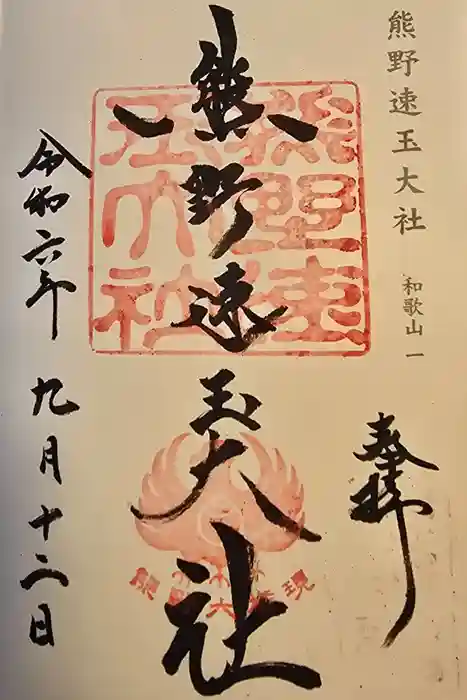 熊野速玉大社
和歌山 一
奉拝
熊野速玉大社
熊野速玉大社
令和六年 九月十二日